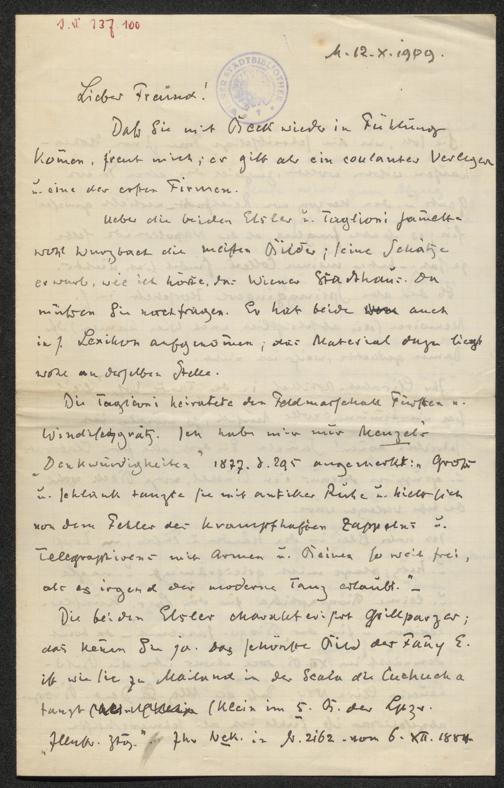 J.N 137.100
WIENER STADTBIBLIOTHEK
M. 12. X. 1909.
Lieber Freund!
Daß Sie mit Beck wieder in Fühlung
komen, freut mich; er gilt als ein coulanter Verleger
u. eine der ersten Firmen.
Ueber die beiden Elsler u. Taglioni samelte
wohl Wurzbach die meisten Bilder; seine Schätze
erwarb, wie ich höre, das Wiener Stadthaus. Da
müßten Sie nachfragen. Er hat beide auch
in s. Lexikon aufgenomen; das Material dazu liegt
wohl an derselben Stelle.
Die Taglioni heiratete den Feldmarschall Fürsten v.
Windischgrätz. Ich habe mir nur Menzel's
„Denkwürdigkeiten" 1877. S. 295 angemerkt: „Groß
u. schlank tanzte sie mit antiker Ruhe u. hielt sich
von dem Fehler des krampfhaften Zappelns u.
Telegraphirens mit Armen u. Beinen so weit frei,
als es irgend der moderne Tanz erlaubt." –
Die beiden Elsler charakterisirt Grillparzer;
das kenen Sie ja. Das schönste Bild der Fany E.
ist wie sie zu Mailand in der Scala die Cachucha
tanzt (klein im 5. B. der Lpzr.
„Illustr. Ztg." Ihr Nek. in N. 2162 vom 6. XII. 1884